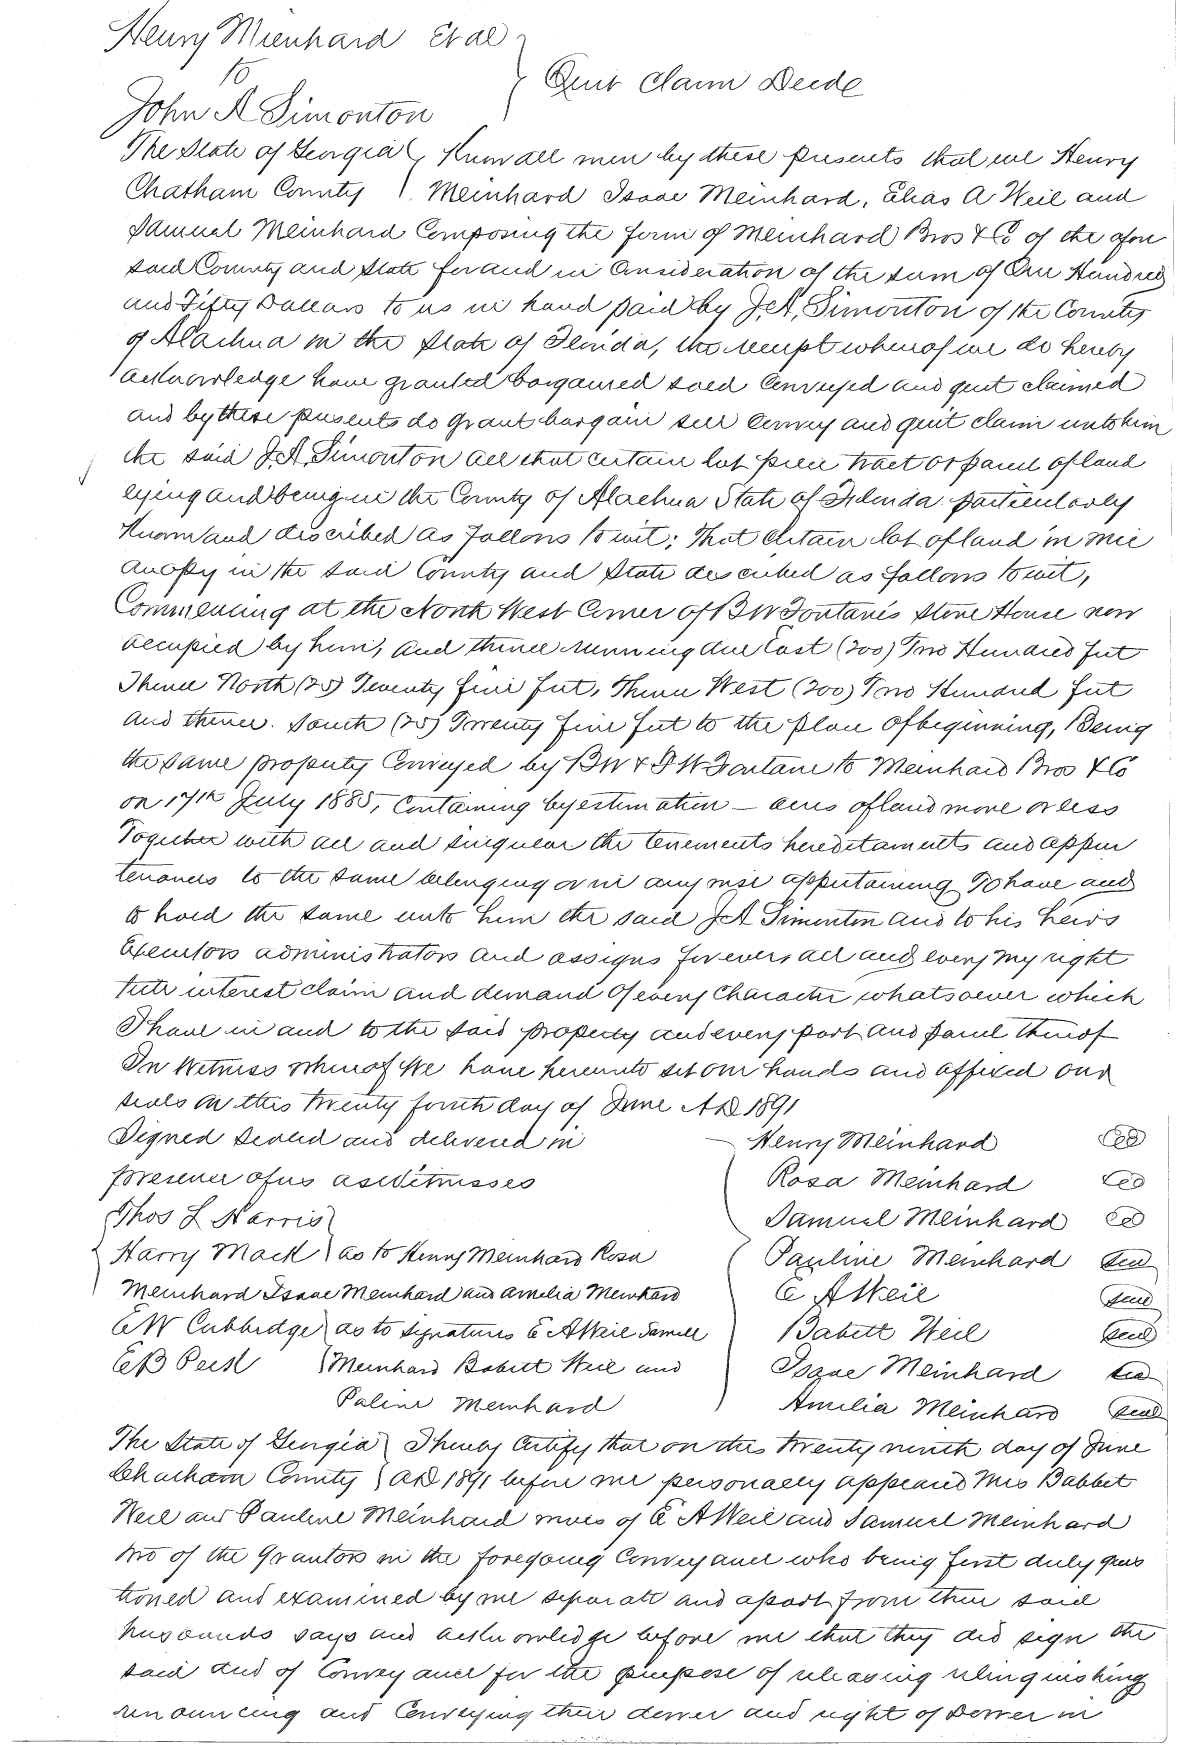 Henry Mienhard Et al
to
Quit Claim Deede
John A Simonton
The State of Georgia Know all men by these presents that we Henry
Chatham County Meinhard Isaac Meinhard, Elias A Weil and
Samuel Meinhard Composing the firm of Meinhard Bros & Co of the afore
said County and State for and in Consideration of the sum of One Hundred
and Fifty Dollars to us in hand paid by J.A. Simonton of the County
of Alachua in the State of Florida, the receipt whereof we do hereby
acknowledge have granted bargained sold Conveyed and quit claimed
and by these presents do grant bargain sell Convey and quit claim unto him
the said J.A. Simonton all that certain lot piece tract or parcel of land
lying and being in the County of Alachua State of Florida particularly
Known and described as follows to wit; That certain lot of land in Mic
anopy in the said County and State described as follows to wit,
Commencing at the North West Corner of B W Fontane's Store House now
occupied by him, and thence running due East (200) Two Hundred feet
Thence North (25) Twenty five feet, Thence West (200) Two Hundred feet
and thence South (25) Twenty five feet to the place of beginning, Being
the same property Conveyed by B W & F W Fontane to Meinhard Bros & Co
on 17th July 1885, Containing by estimation — acres of land more or less
Together with all and singular the tenements hereditaments and appur
tenances to the same belonging or in any wise appertaining To have and
to hold the same unto him the said J A Simonton and to his heirs
Executors administrators and assigns forever all and every my right
title interest claim and demand of every Character whatsoever which
I have in and to the said property and every part and parcel thereof
In Witness whereof We have hereunto set our hands and affixed our
seals on this twenty fourth day of June A.D. 1891
Signed sealed and delivered in Henry Meinhard
presence of us as Witnesses Rosa Meinhard
Thos L Harris Samuel Meinhard
Harry Mack as to Henry Meinhard Rosa Pauline Meinhard seal
Meinhard Isaac Meinhard and Amelia Meinhard E A Weil seal
E W Cubbedge as to signatures E A Weil Samuel Babett Weil seal
E B Peck Meinhard Babett Weil and Isaac Meinhard seal
Paline Meinhard Amelia Meinhard seal
The State of Georgia I hereby Certify that on this twenty ninth day of June
Chatham County AD 1891 before me personally appeared Mrs Babbet
Weil and Pauline Meinhard wives of E A Weil and Samuel Meinhard
two of the Grantors in the foregoing Conveyance who being first duly ques
tioned and examined by me separate and apart from their said
husbands says and acknowledge before me that they did sign the
said deed of Conveyance for the purpose of releasing relinquishing
renouncing and Conveying their dower and right of Dower in